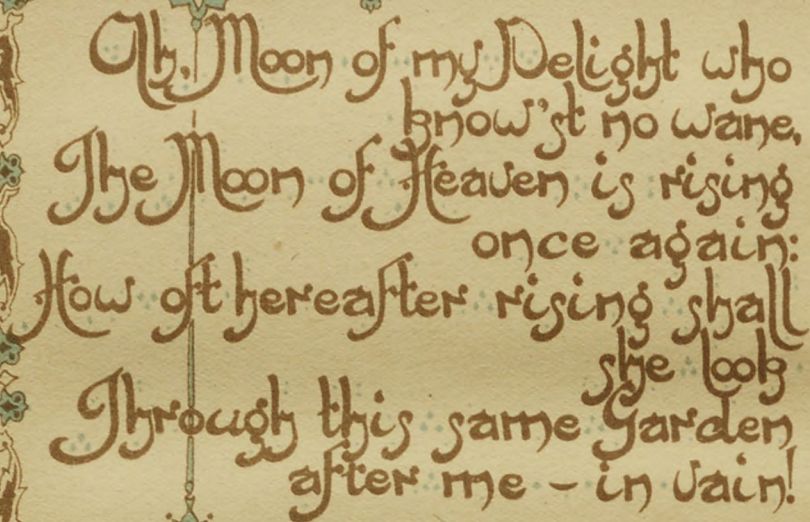 Ah, Moon of my Delight who
know'st no wane,
The Moon of Heaven is rising
once again:
How oft hereafter rising shall
she look
Through this same Garden
after me – in vain!